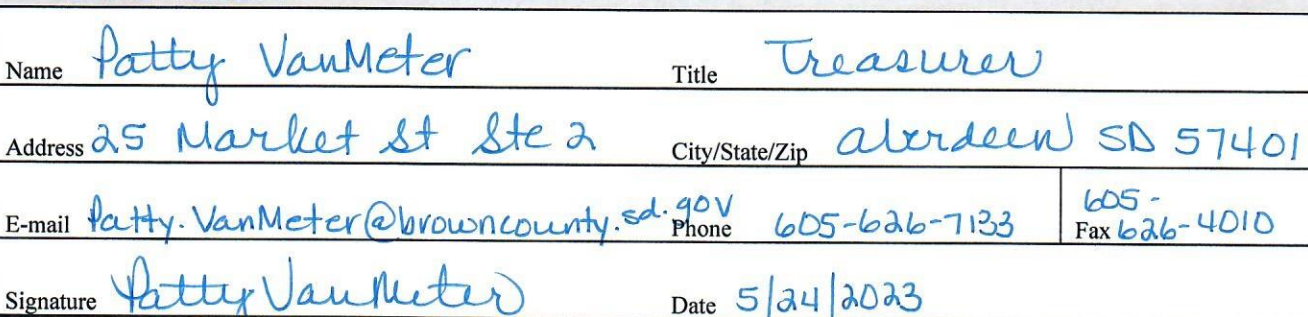 Name Patty VanMeter Title Treasurer
Address 25 Market St Ste 2 City/State/Zip Aberdeen SD 57401
E-mail Patty.VanMeter@browncounty.sd.gov Phone 605-626-7133 Fax 605-626-4010
Signature Patty VanMeter Date 5/24/2023